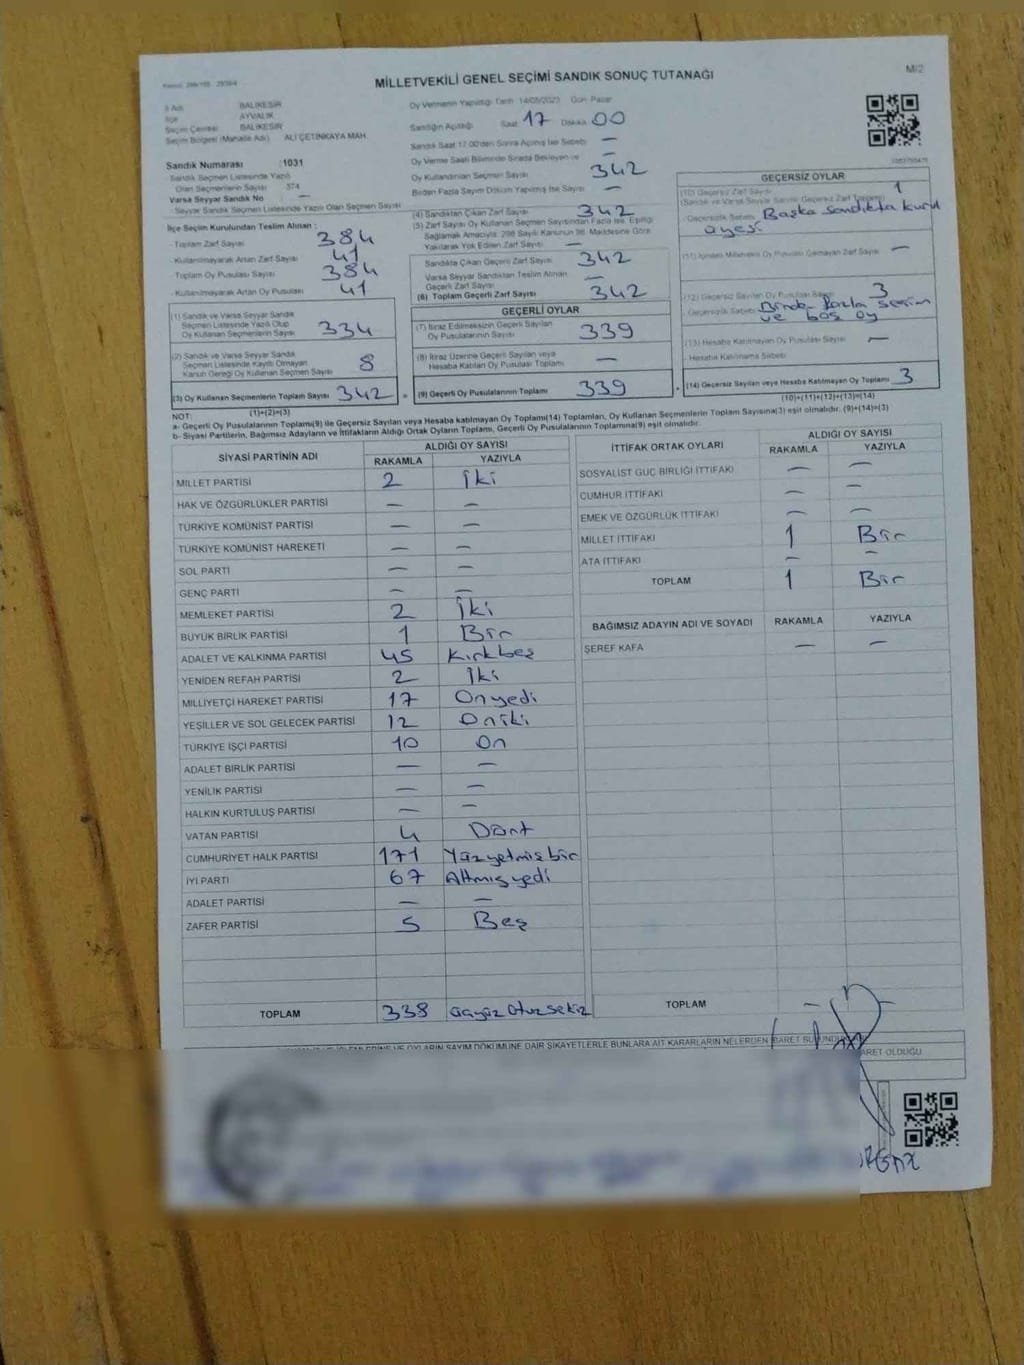 MİLLETVEKİLİ GENEL SEÇİMİ SANDIK SONUÇ TUTANAĞI
M/2
İl Adı BALIKESİR
İlçe AYVALIK
Seçim Çevresi BALIKESİR
Seçim Bölgesi (Mahalle Adı) ALİ ÇETİNKAYA MAH.
Sandık Numarası :1031
Sandık Seçmen Listesinde Yazılı
Olan Seçmenlerin Sayısı 374
Varsa Seyyar Sandık No —
Seyyar Sandık Seçmen Listesinde Yazılı Olan Seçmen Sayısı
İlçe Seçim Kurulundan Teslim Alınan :
- Toplam Zarf Sayısı 384
- Kullanılmayarak Artan Zarf Sayısı 41
Toplam Oy Pusulası Sayısı 384
- Kullanılmayarak Artan Oy Pusulası 41
(1) Sandık ve Varsa Seyyar Sandık
Seçmen Listesinde Yazılı Olup
Oy Kullanan Seçmenlerin Sayısı 334
(2) Sandık ve Varsa Seyyar Sandık
Seçmen Listesinde Kayıtlı Olmayan
Kanun Gereği Oy Kullanan Seçmen Sayısı 8
(3) Oy Kullanan Seçmenlerin Toplam Sayısı 342
(1)+(2)=(3)
Oy Vermenin Yapıldığı Tarih 14/05/2023 Gün Pazar
Sandığın Açıldığı Saat 17 Dakika 00
Sandık Saat 17.00'den Sonra Açılmış İse Sebebi —
Oy Verme Saati Bitiminde Sırada Bekleyen ve —
Oy Kullandırılan Seçmen Sayısı 342
Birden Fazla Sayım Döküm Yapılmış İse Sayısı —
(4) Sandıktan Çıkan Zarf Sayısı 342
(5) Zarf Sayısı Oy Kullanan Seçmen Sayısından Fazla ise, Eşitliği
Sağlamak Amacıyla, 298 Sayılı Kanunun 98. Maddesine Göre
Yakılarak Yok Edilen Zarf Sayısı —
Sandıkta Çıkan Geçerli Zarf Sayısı 342
Varsa Seyyar Sandıktan Teslim Alınan
Geçerli Zarf Sayısı —
(6) Toplam Geçerli Zarf Sayısı 342
GEÇERLİ OYLAR
(7) İtiraz Edilmeksizin Geçerli Sayılan
Oy Pusulalarının Sayısı 339
(8) İtiraz Üzerine Geçerli Sayılan veya
Hesaba Katılan Oy Pusulası Toplamı —
(9) Geçerli Oy Pusulalarının Toplamı 339
GEÇERSİZ OYLAR
(10) Geçersiz Zarf Sayısı 1
(Sandık ve Varsa Seyyar Sandık Geçersiz Zarf Toplamı)
- Geçersizlik Sebebi Başka sandıkta kurul
üyesi
(11) İçinden Milletvekili Oy Pusulası Çıkmayan Zarf Sayısı —
(12) Geçersiz Sayılan Oy Pusulası Sayısı 3
- Geçersizlik Sebebi Birden fazla seçim
ve boş oy
(13) Hesaba Katılmayan Oy Pusulası Sayısı —
- Hesaba Katılmama Sebebi
(14) Geçersiz Sayılan veya Hesaba Katılmayan Oy Toplamı 3
(10)+(11)+(12)+(13)=(14)
NOT:
a- Geçerli Oy Pusulalarının Toplamı(9) ile Geçersiz Sayılan veya Hesaba katılmayan Oy Toplamı(14) Toplamları, Oy Kullanan Seçmenlerin Toplam Sayısına(3) eşit olmalıdır. (9)+(14)=(3)
b- Siyasi Partilerin, Bağımsız Adayların ve İttifakların Aldığı Ortak Oyların Toplamı, Geçerli Oy Pusulalarının Toplamına(9) eşit olmalıdır.
SİYASİ PARTİNİN ADI ALDIĞI OY SAYISI
RAKAMLA YAZIYLA
MİLLET PARTİSİ 2 İki
HAK VE ÖZGÜRLÜKLER PARTİSİ — —
TÜRKİYE KOMÜNİST PARTİSİ — —
TÜRKİYE KOMÜNİST HAREKETİ — —
SOL PARTİ — —
GENÇ PARTİ — —
MEMLEKET PARTİSİ 2 İki
BÜYÜK BİRLİK PARTİSİ 1 Bir
ADALET VE KALKINMA PARTİSİ 45 Kırkbeş
YENİDEN REFAH PARTİSİ 2 İki
MİLLİYETÇİ HAREKET PARTİSİ 17 Onyedi
YEŞİLLER VE SOL GELECEK PARTİSİ 12 Oniki
TÜRKİYE İŞÇİ PARTİSİ 10 On
ADALET BİRLİK PARTİSİ — —
YENİLİK PARTİSİ — —
HALKIN KURTULUŞ PARTİSİ — —
VATAN PARTİSİ 4 Dört
CUMHURİYET HALK PARTİSİ 171 Yüzyetmişbir
İYİ PARTİ 67 Altmışyedi
ADALET PARTİSİ — —
ZAFER PARTİSİ 5 Beş
TOPLAM 338 üçyüz Otuzsekiz
İTTİFAK ORTAK OYLARI ALDIĞI OY SAYISI
RAKAMLA YAZIYLA
SOSYALİST GÜÇ BİRLİĞİ İTTİFAKI — —
CUMHUR İTTİFAKI — —
EMEK VE ÖZGÜRLÜK İTTİFAKI — —
MİLLET İTTİFAKI 1 Bir
ATA İTTİFAKI — —
TOPLAM 1 Bir
BAĞIMSIZ ADAYIN ADI VE SOYADI RAKAMLA YAZIYLA
ŞEREF KAFA — —
TOPLAM — —
OYLARIN SAYIM DÖKÜMÜNE DAİR ŞİKAYETLERLE BUNLARA AİT KARARLARIN NELERDEN İBARET BULUNDUĞU
İBARET OLDUĞU